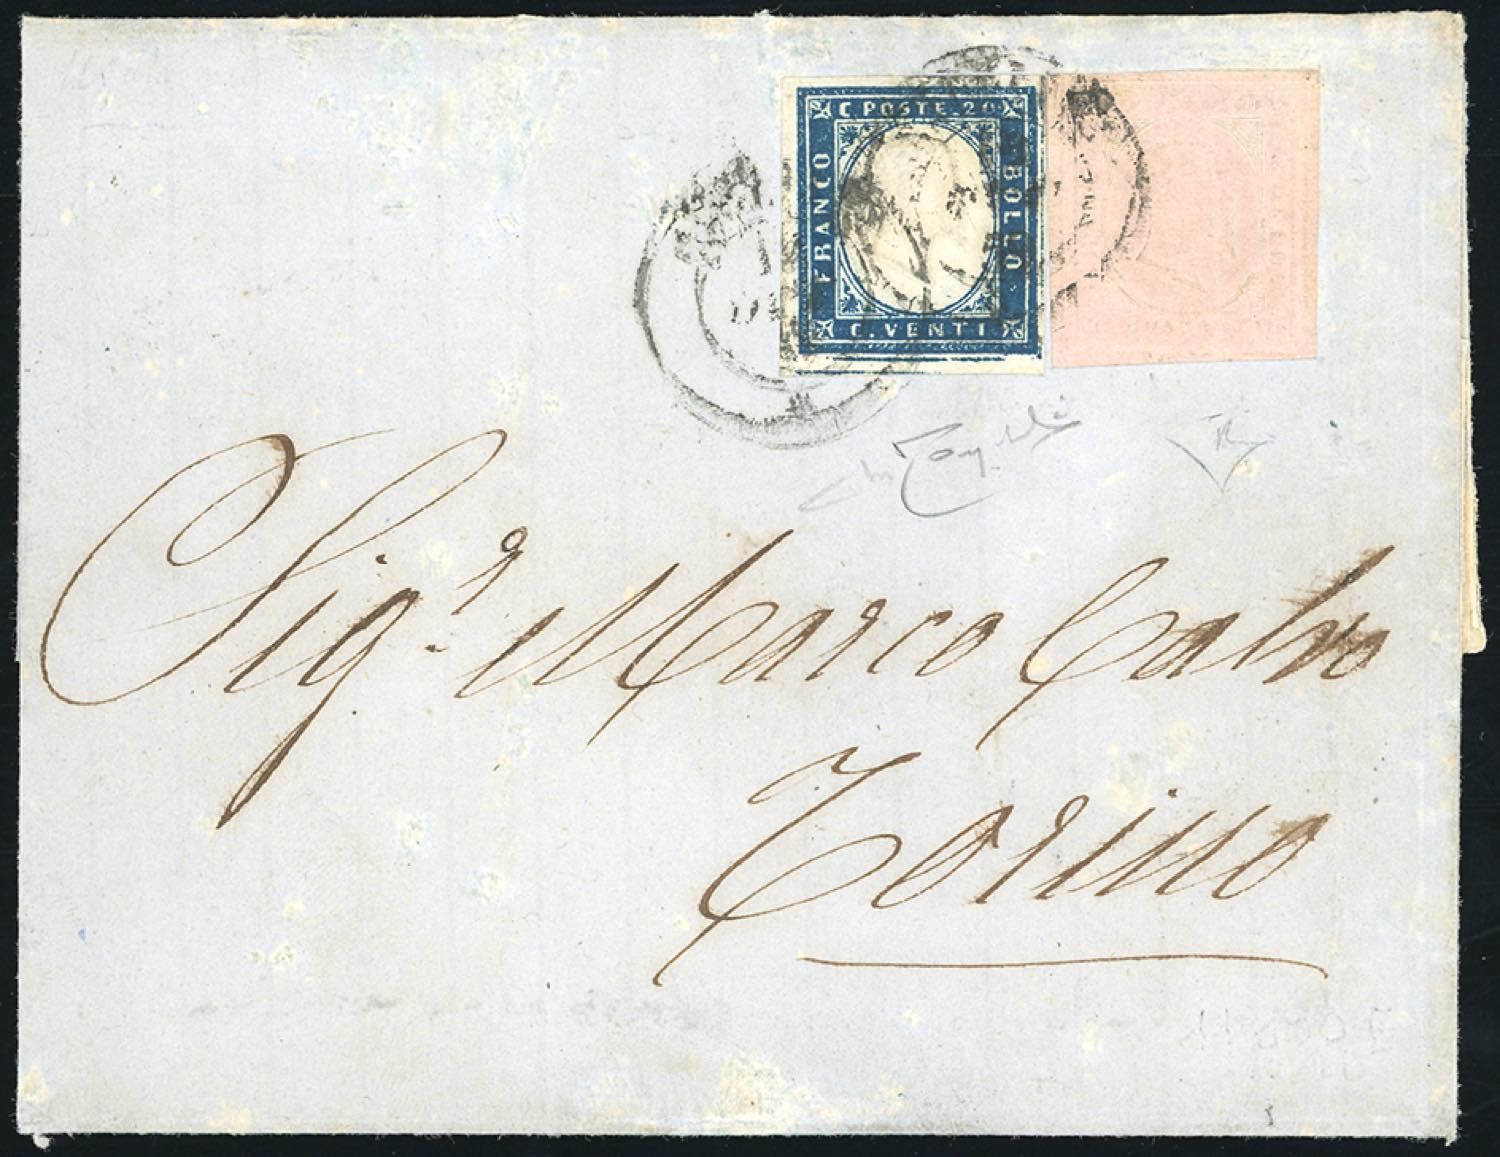 C POSTE 20
FRANCO
BOLLO
C. VENTI
Sigr. Marco Calvo
Torino